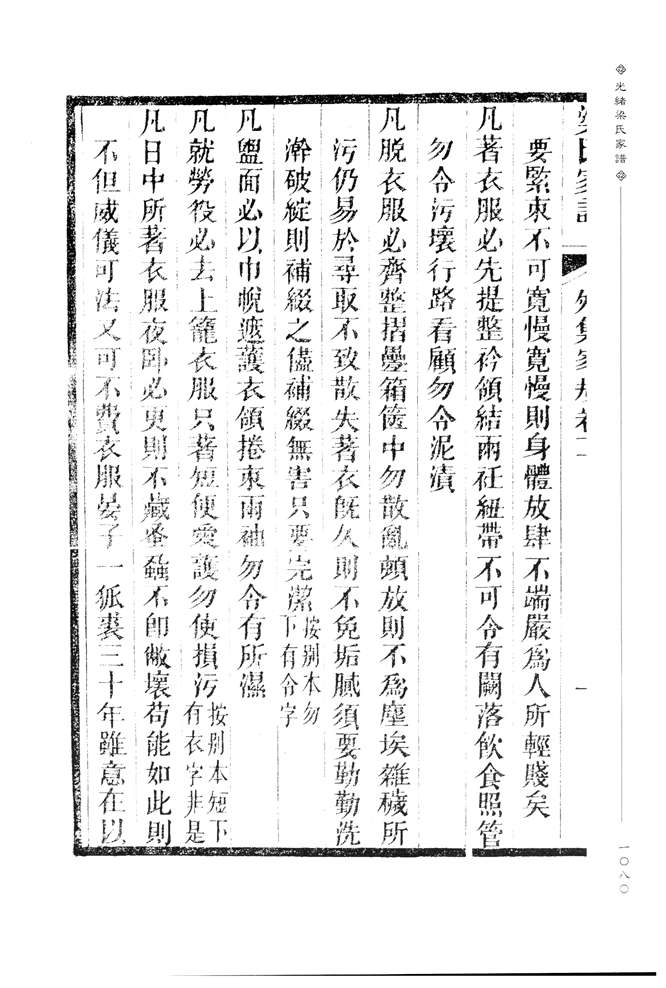 光緒梁氏家譜
一〇八〇
梁氏家譜 外集家規卷二 一
要緊束不可寬慢寬慢則身體放肆不端嚴爲人所輕賤矣
凡著衣服必先提整衿領結兩衽紐帶不可令有闕落飮食照管
勿令污壞行路看顧勿令泥漬
凡脫衣服必齊整摺疊箱篋中勿散亂頓放則不爲塵埃雜穢所
污仍易於尋取不致散失著衣旣久則不免垢膩須要勤勤洗
澣破綻則補綴之儘補綴無害只要完潔按别本勿下有令字
凡盥面必以巾帨遮護衣領捲束兩袖勿令有所濕
凡就勞役必去上籠衣服只著短便愛護勿使損污按别本短下有衣字非是
凡日中所著衣服夜卧必更則不藏蚤蝨不卽敝壞苟能如此則
不但威儀可法又可不費衣服晏子一狐裘三十年雖意在以